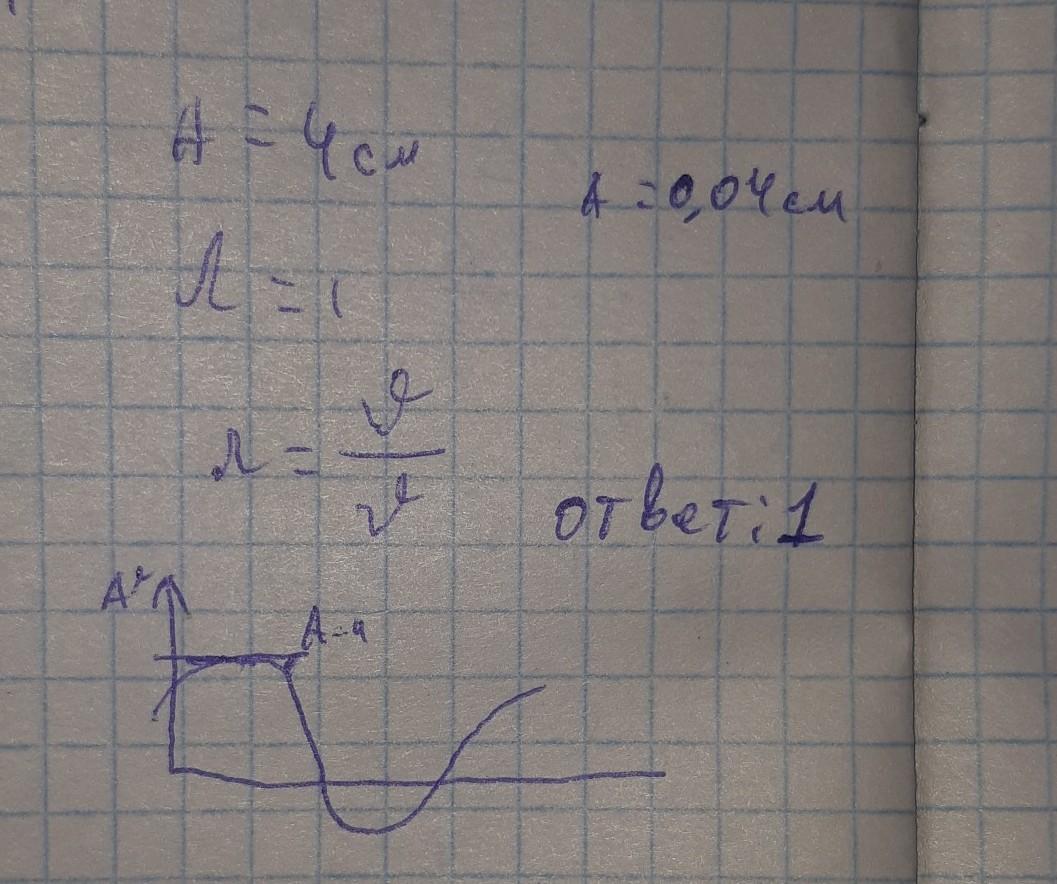 A = 4 см
A = 0,04 см
λ = 1
λ = ϑ/ϑ
ответ: 1
A
A=4